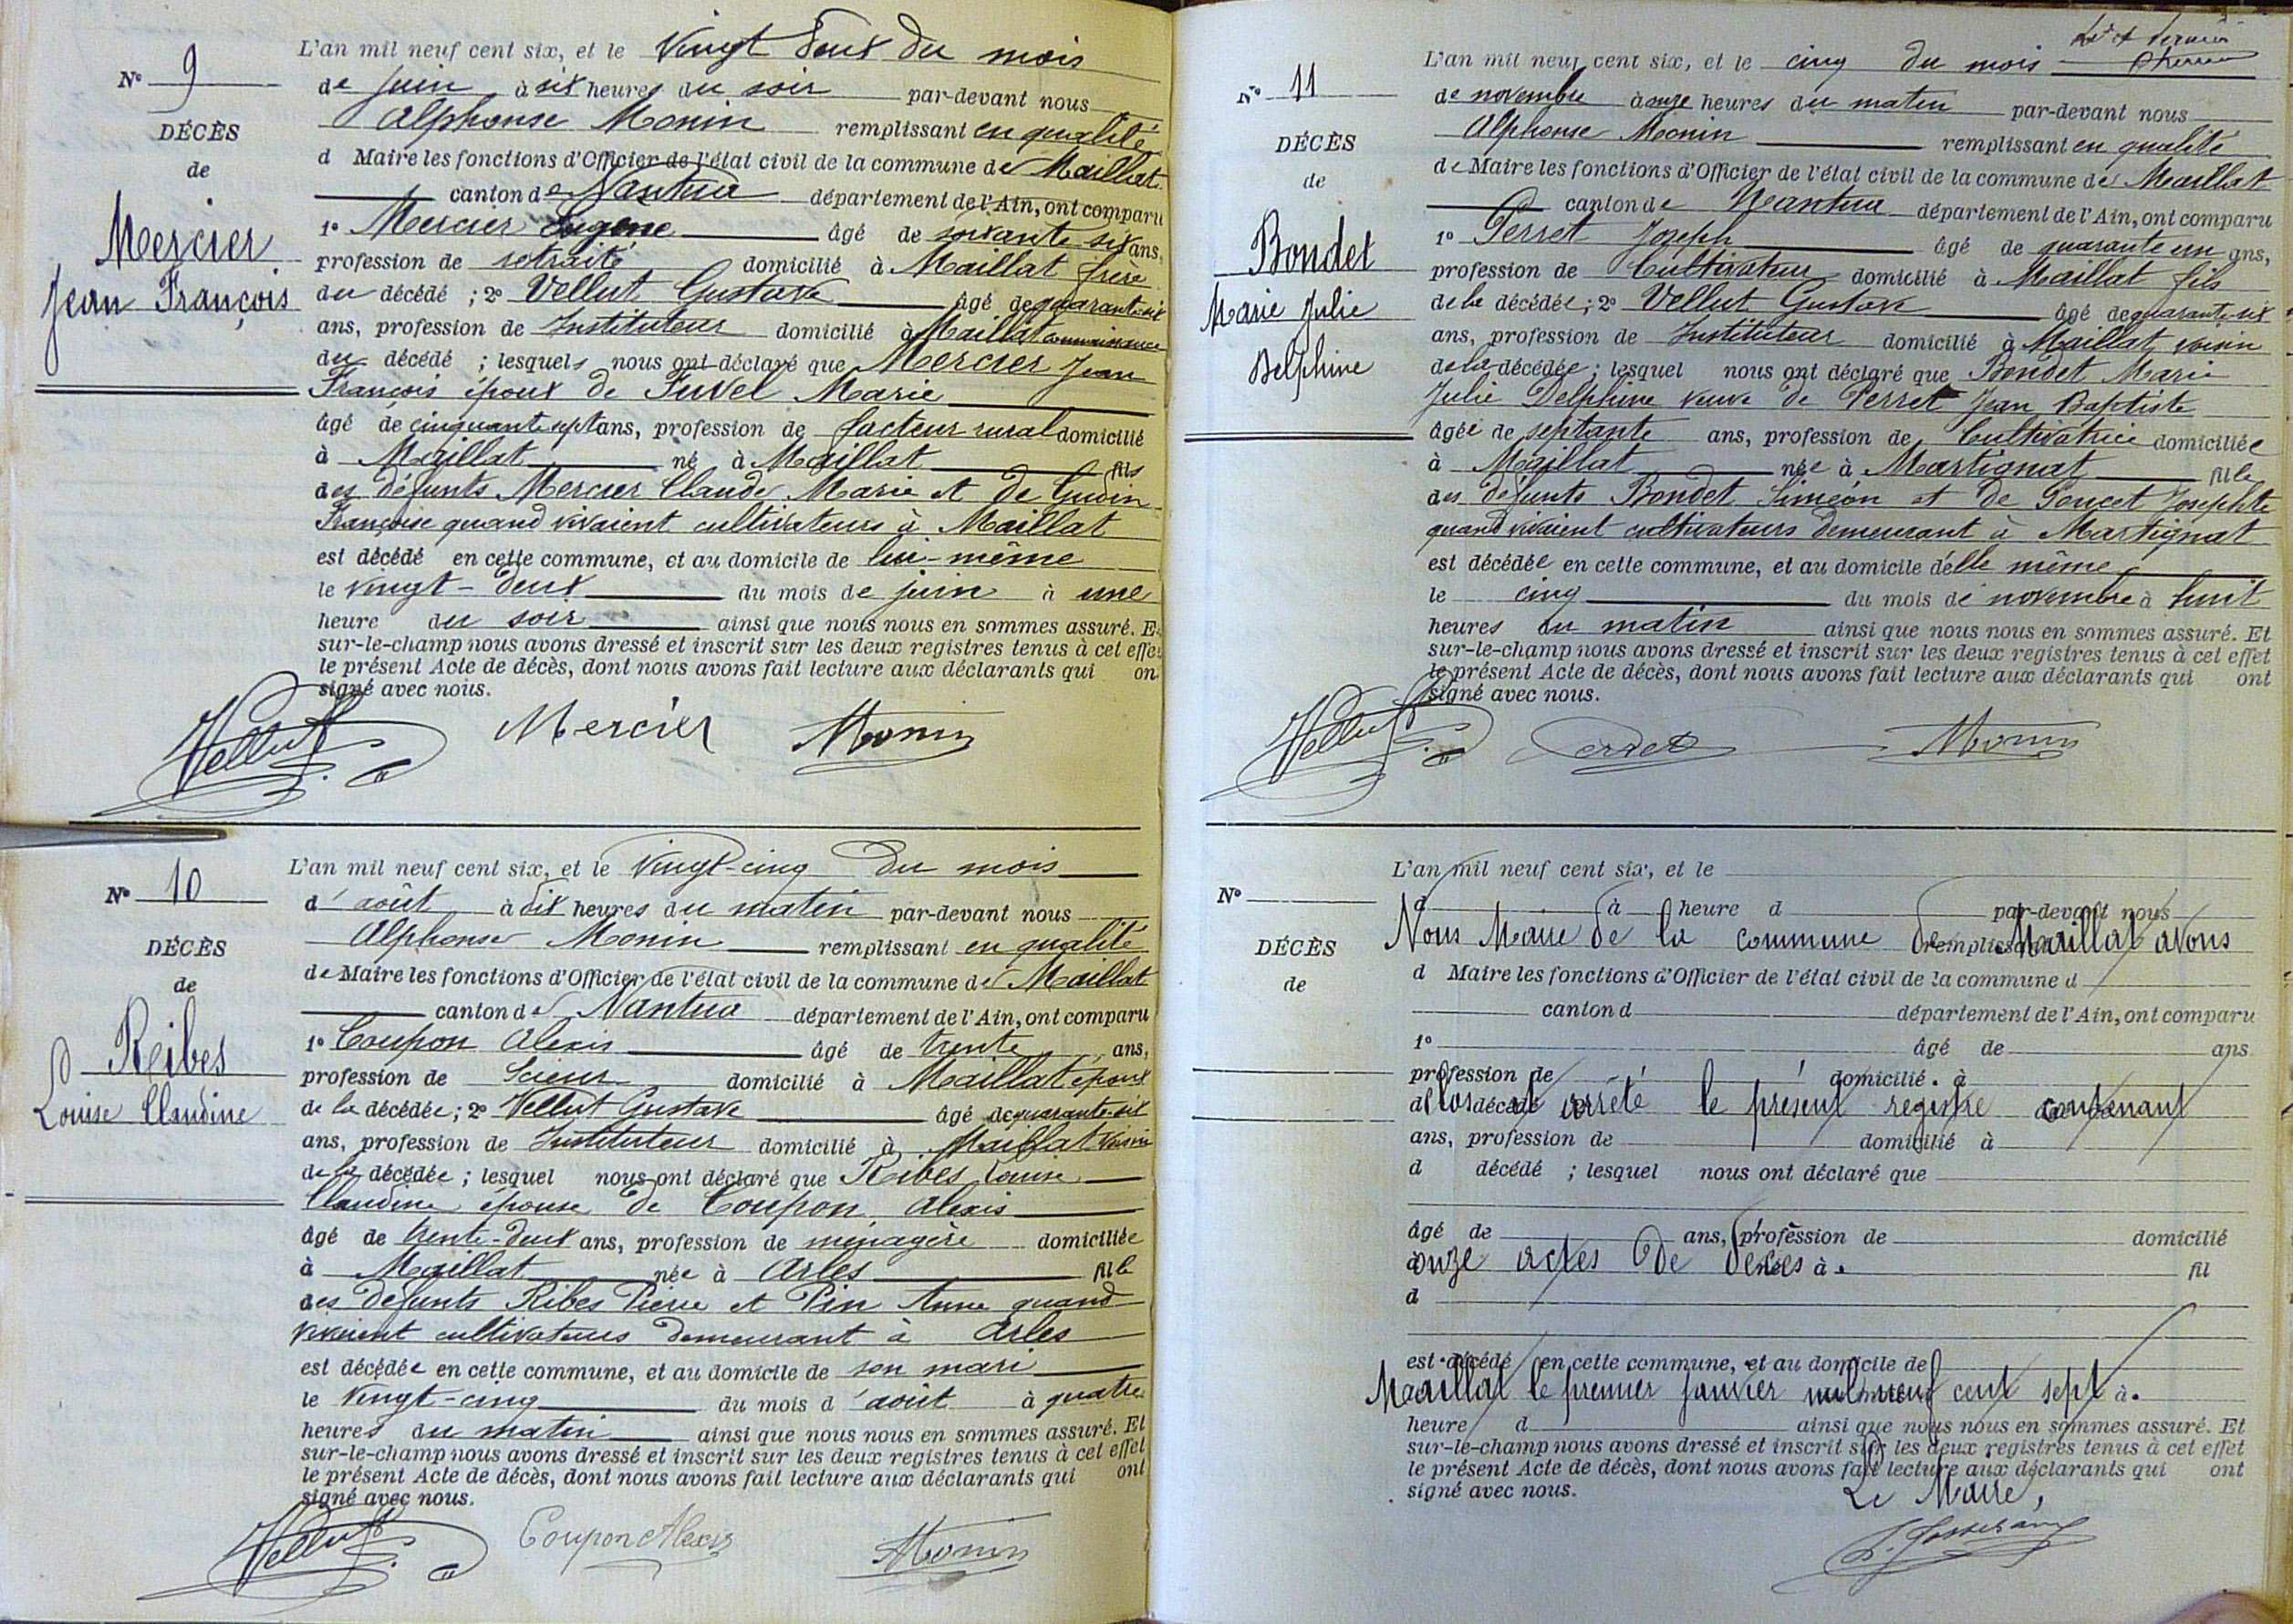 N° 9
DÉCÈS
de
Mercier
Jean François
L'an mil neuf cent six, et le Vingt deux du mois
de juin à six heures du soir par-devant nous
Alphonse Monin remplissant en qualité
d Maire les fonctions d'Officier de l'état civil de la commune de Maillat
canton de Nantua département de l'Ain, ont comparu
1° Mercier Eugène âgé de soixante six ans,
profession de retraité domicilié à Maillat frère
du décédé ; 2° Vellut Gustave âgé de quarante-six
ans, profession de Instituteur domicilié à Maillat connaissance
du décédé ; lesquels nous ont déclaré que Mercier Jean
François époux de Juvel Marie
âgé de cinquante sept ans, profession de facteur rural domicilié
à Maillat né à Maillat fils
des défunts Mercier Claude Marie et de Gudin
Françoise quand vivaient cultivateurs à Maillat
est décédé en cette commune, et au domicile de lui-même
le vingt-deux du mois de juin à une
heure du soir ainsi que nous nous en sommes assuré. Et
sur-le-champ nous avons dressé et inscrit sur les deux registres tenus à cet effet
le présent Acte de décès, dont nous avons fait lecture aux déclarants qui on
signé avec nous.
Vellut Mercier Monin
N° 10
DÉCÈS
de
Reibes
Louise Claudine
L'an mil neuf cent six, et le Vingt-cinq du mois
d'août à dix heures du matin par-devant nous
Alphonse Monin remplissant en qualité
de Maire les fonctions d'Officier de l'état civil de la commune de Maillat
canton de Nantua département de l'Ain, ont comparu
1° Coupon Alexis âgé de trente ans,
profession de Scieur domicilié à Maillat époux
de la décédée ; 2° Vellut Gustave âgé de quarante-six
ans, profession de Instituteur domicilié à Maillat voisin
de la décédée ; lesquel nous ont déclaré que Reibes Louise
Claudine épouse de Coupon Alexis
âgé de trente-deux ans, profession de ménagère domiciliée
à Maillat née à Arles fille
des défunts Ribes Pierre et Pin Anne quand
vivaient cultivateurs demeurant à Arles
est décédée en cette commune, et au domicile de son mari
le vingt-cinq du mois d'août à quatre
heures du matin ainsi que nous nous en sommes assuré. Et
sur-le-champ nous avons dressé et inscrit sur les deux registres tenus à cet effet
le présent Acte de décès, dont nous avons fait lecture aux déclarants qui ont
signé avec nous.
Vellut Coupon Alexis Monin
N° 11
DÉCÈS
de
Bondet
Marie Julie
Delphine
L'an mil neuf cent six, et le cinq du mois
de novembre à onze heures du matin par-devant nous
Alphonse Monin remplissant en qualité
de Maire les fonctions d'Officier de l'état civil de la commune de Maillat
canton de Nantua département de l'Ain, ont comparu
1° Perret Joseph âgé de quarante un ans,
profession de Cultivateur domicilié à Maillat fils
de la décédée ; 2° Vellut Gustave âgé de quarante-six
ans, profession de Instituteur domicilié à Maillat voisin
de la décédée ; lesquel nous ont déclaré que Bondet Marie
Julie Delphine veuve de Perret Jean Baptiste
âgée de septante ans, profession de Cultivatrice domiciliée
à Maillat née à Martignat fille
des défunts Bondet Siméon et de Goucet Josephte
quand vivaient cultivateurs demeurant à Martignat
est décédée en cette commune, et au domicile d'elle même
le cinq du mois de novembre à huit
heures du matin ainsi que nous nous en sommes assuré. Et
sur-le-champ nous avons dressé et inscrit sur les deux registres tenus à cet effet
le présent Acte de décès, dont nous avons fait lecture aux déclarants qui ont
signé avec nous.
Vellut Perret Monin
N°
DÉCÈS
de
L'an mil neuf cent six, et le
d à heure d par-devant nous
Nous Maire de la commune de Maillat avons
d Maire les fonctions d'Officier de l'état civil de la commune d
canton d département de l'Ain, ont comparu
1° âgé de ans
profession de domicilié à
clos et arrêté le présent registre contenant
ans, profession de domicilié à
d décédé ; lesquel nous ont déclaré que
âgé de ans, profession de domicilié
onze actes de décès à fil
d
est décédé en cette commune, et au domicile de
Maillat le premier janvier mil neuf cent sept à
heure d ainsi que nous nous en sommes assuré. Et
sur-le-champ nous avons dressé et inscrit sur les deux registres tenus à cet effet
le présent Acte de décès, dont nous avons fait lecture aux déclarants qui ont
signé avec nous.
Le Maire,